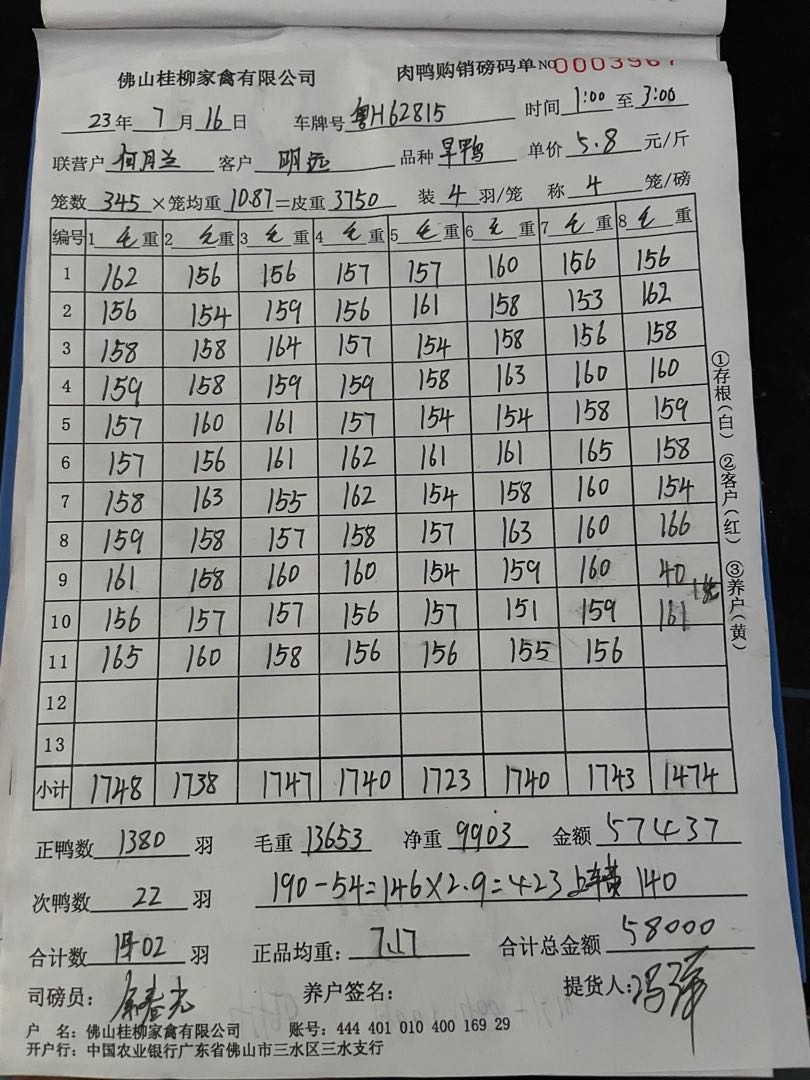 佛山桂柳家禽有限公司 肉鸭购销磅码单 NO 0003967
23年 7月16日 车牌号 粤H62815 时间 1:00 至 3:00
联营户 何月兰 客户 明远 品种 旱鸭 单价 5.8 元/斤
笼数 345 ×笼均重 10.87 =皮重 3750 装 4 羽/笼 称 4 笼/磅
编号 1 毛重 2 毛重 3 毛重 4 毛重 5 毛重 6 毛重 7 毛重 8 毛重
1 162 156 156 157 157 160 156 156
2 156 154 159 156 161 158 153 162
3 158 158 164 157 154 158 156 158
4 159 158 159 159 158 163 160 160
5 157 160 161 157 154 154 158 159
6 157 156 161 162 161 161 165 158
7 158 163 155 162 154 158 160 154
8 159 158 157 158 157 163 160 166
9 161 158 160 160 154 159 160 40
10 156 157 157 156 157 151 159 161
11 165 160 158 156 156 155 156
12
13
小计 1748 1738 1747 1740 1723 1740 1743 1474
正鸭数 1380 羽 毛重 13653 净重 9903 金额 57437
次鸭数 22 羽 190-54=146×2.9=423 上车费 140
合计数 1402 羽 正品均重: 7.17 合计总金额 58000
司磅员: 养户签名: 提货人:
户 名: 佛山桂柳家禽有限公司 账号: 444 401 010 400 169 29
开户行: 中国农业银行广东省佛山市三水区三水支行
①存根(白) ②客户(红) ③养户(黄)